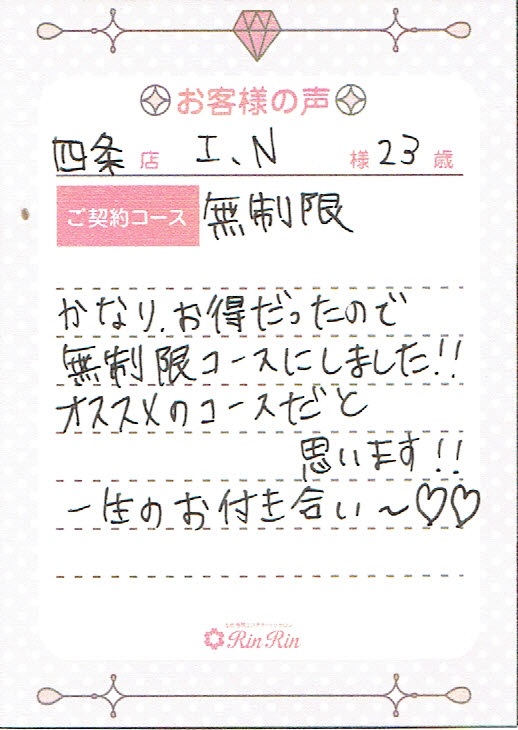 お客様の声
四条 店 I、N 様 23 歳
ご契約コース 無制限
かなり、お得だったので
無制限コースにしました!!
オススメのコースだと
思います!!
一生のお付き合い～♡♡
RinRin